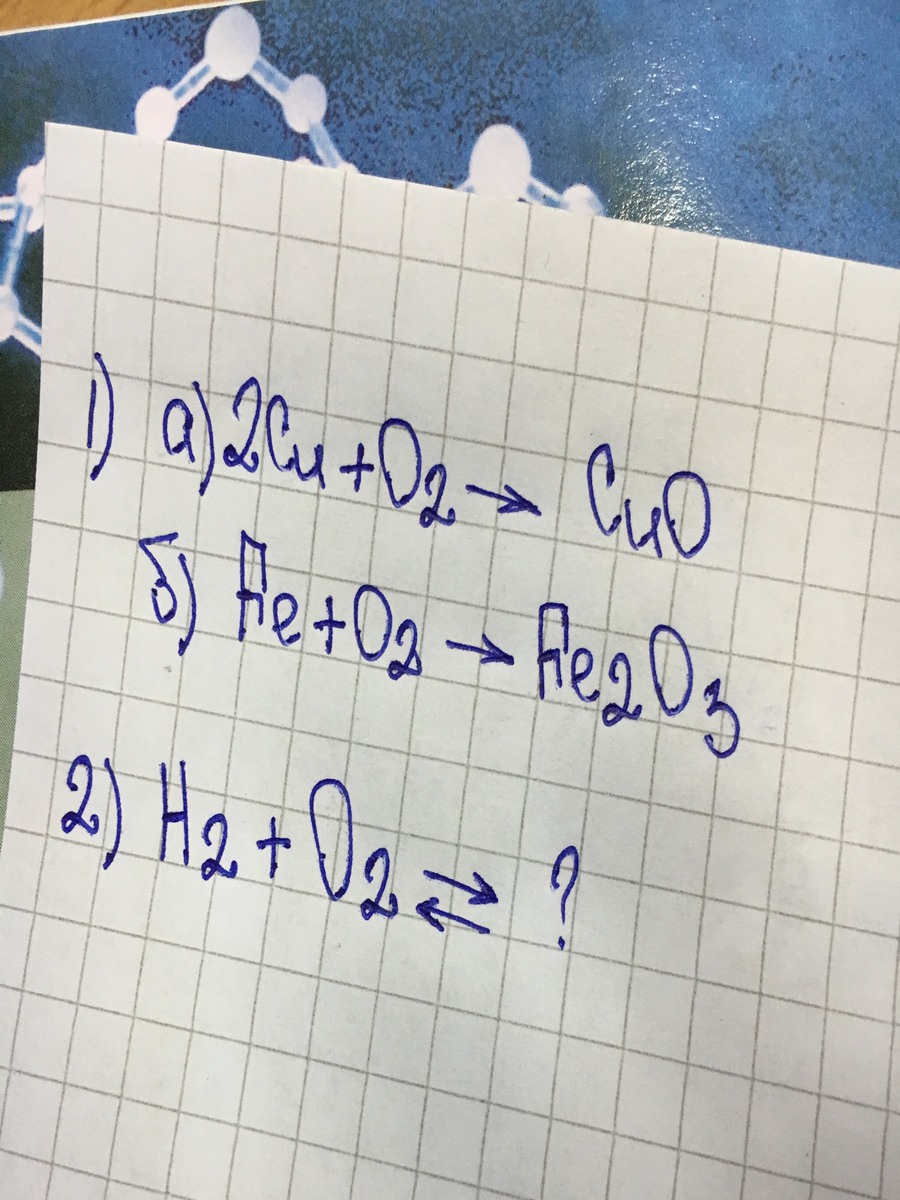 1) а) 2Cu + O2 → CuO
б) Fe + O2 → Fe2O3
2) H2 + O2 ⇄ ?